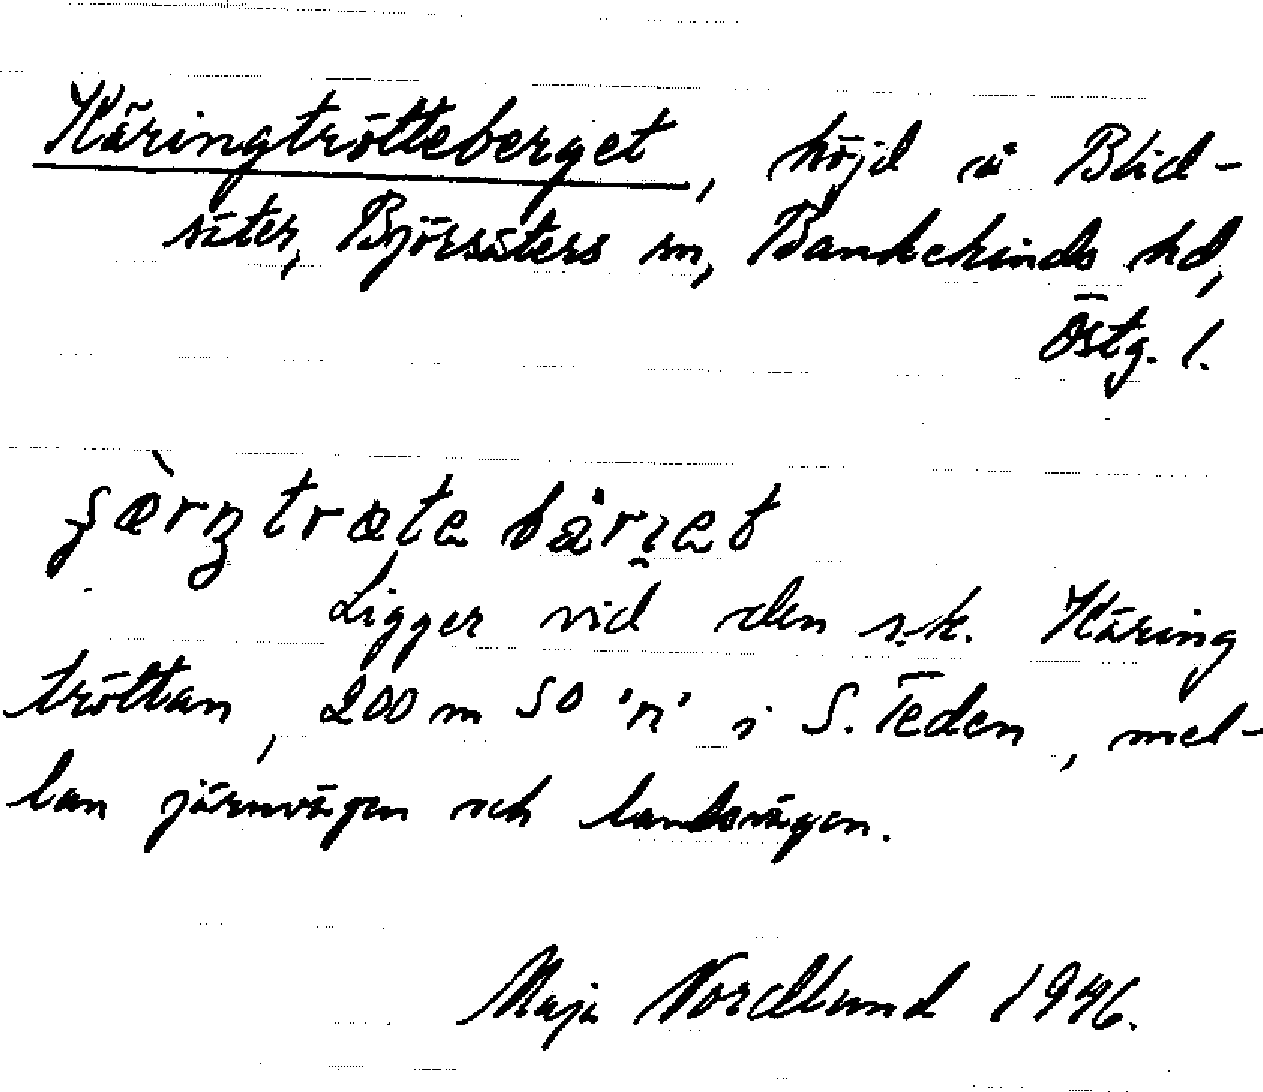 Käringtrötteberget, höjd å Blid-
säter, Björsäters sn, Bankekinds hd,
Östg. l.
Ligger vid den s.k. Käring
tröttan, 200 m SO 'n' i S. Teden, mel-
lan järnvägen och landsvägen.
Maja Nordlund 1946.